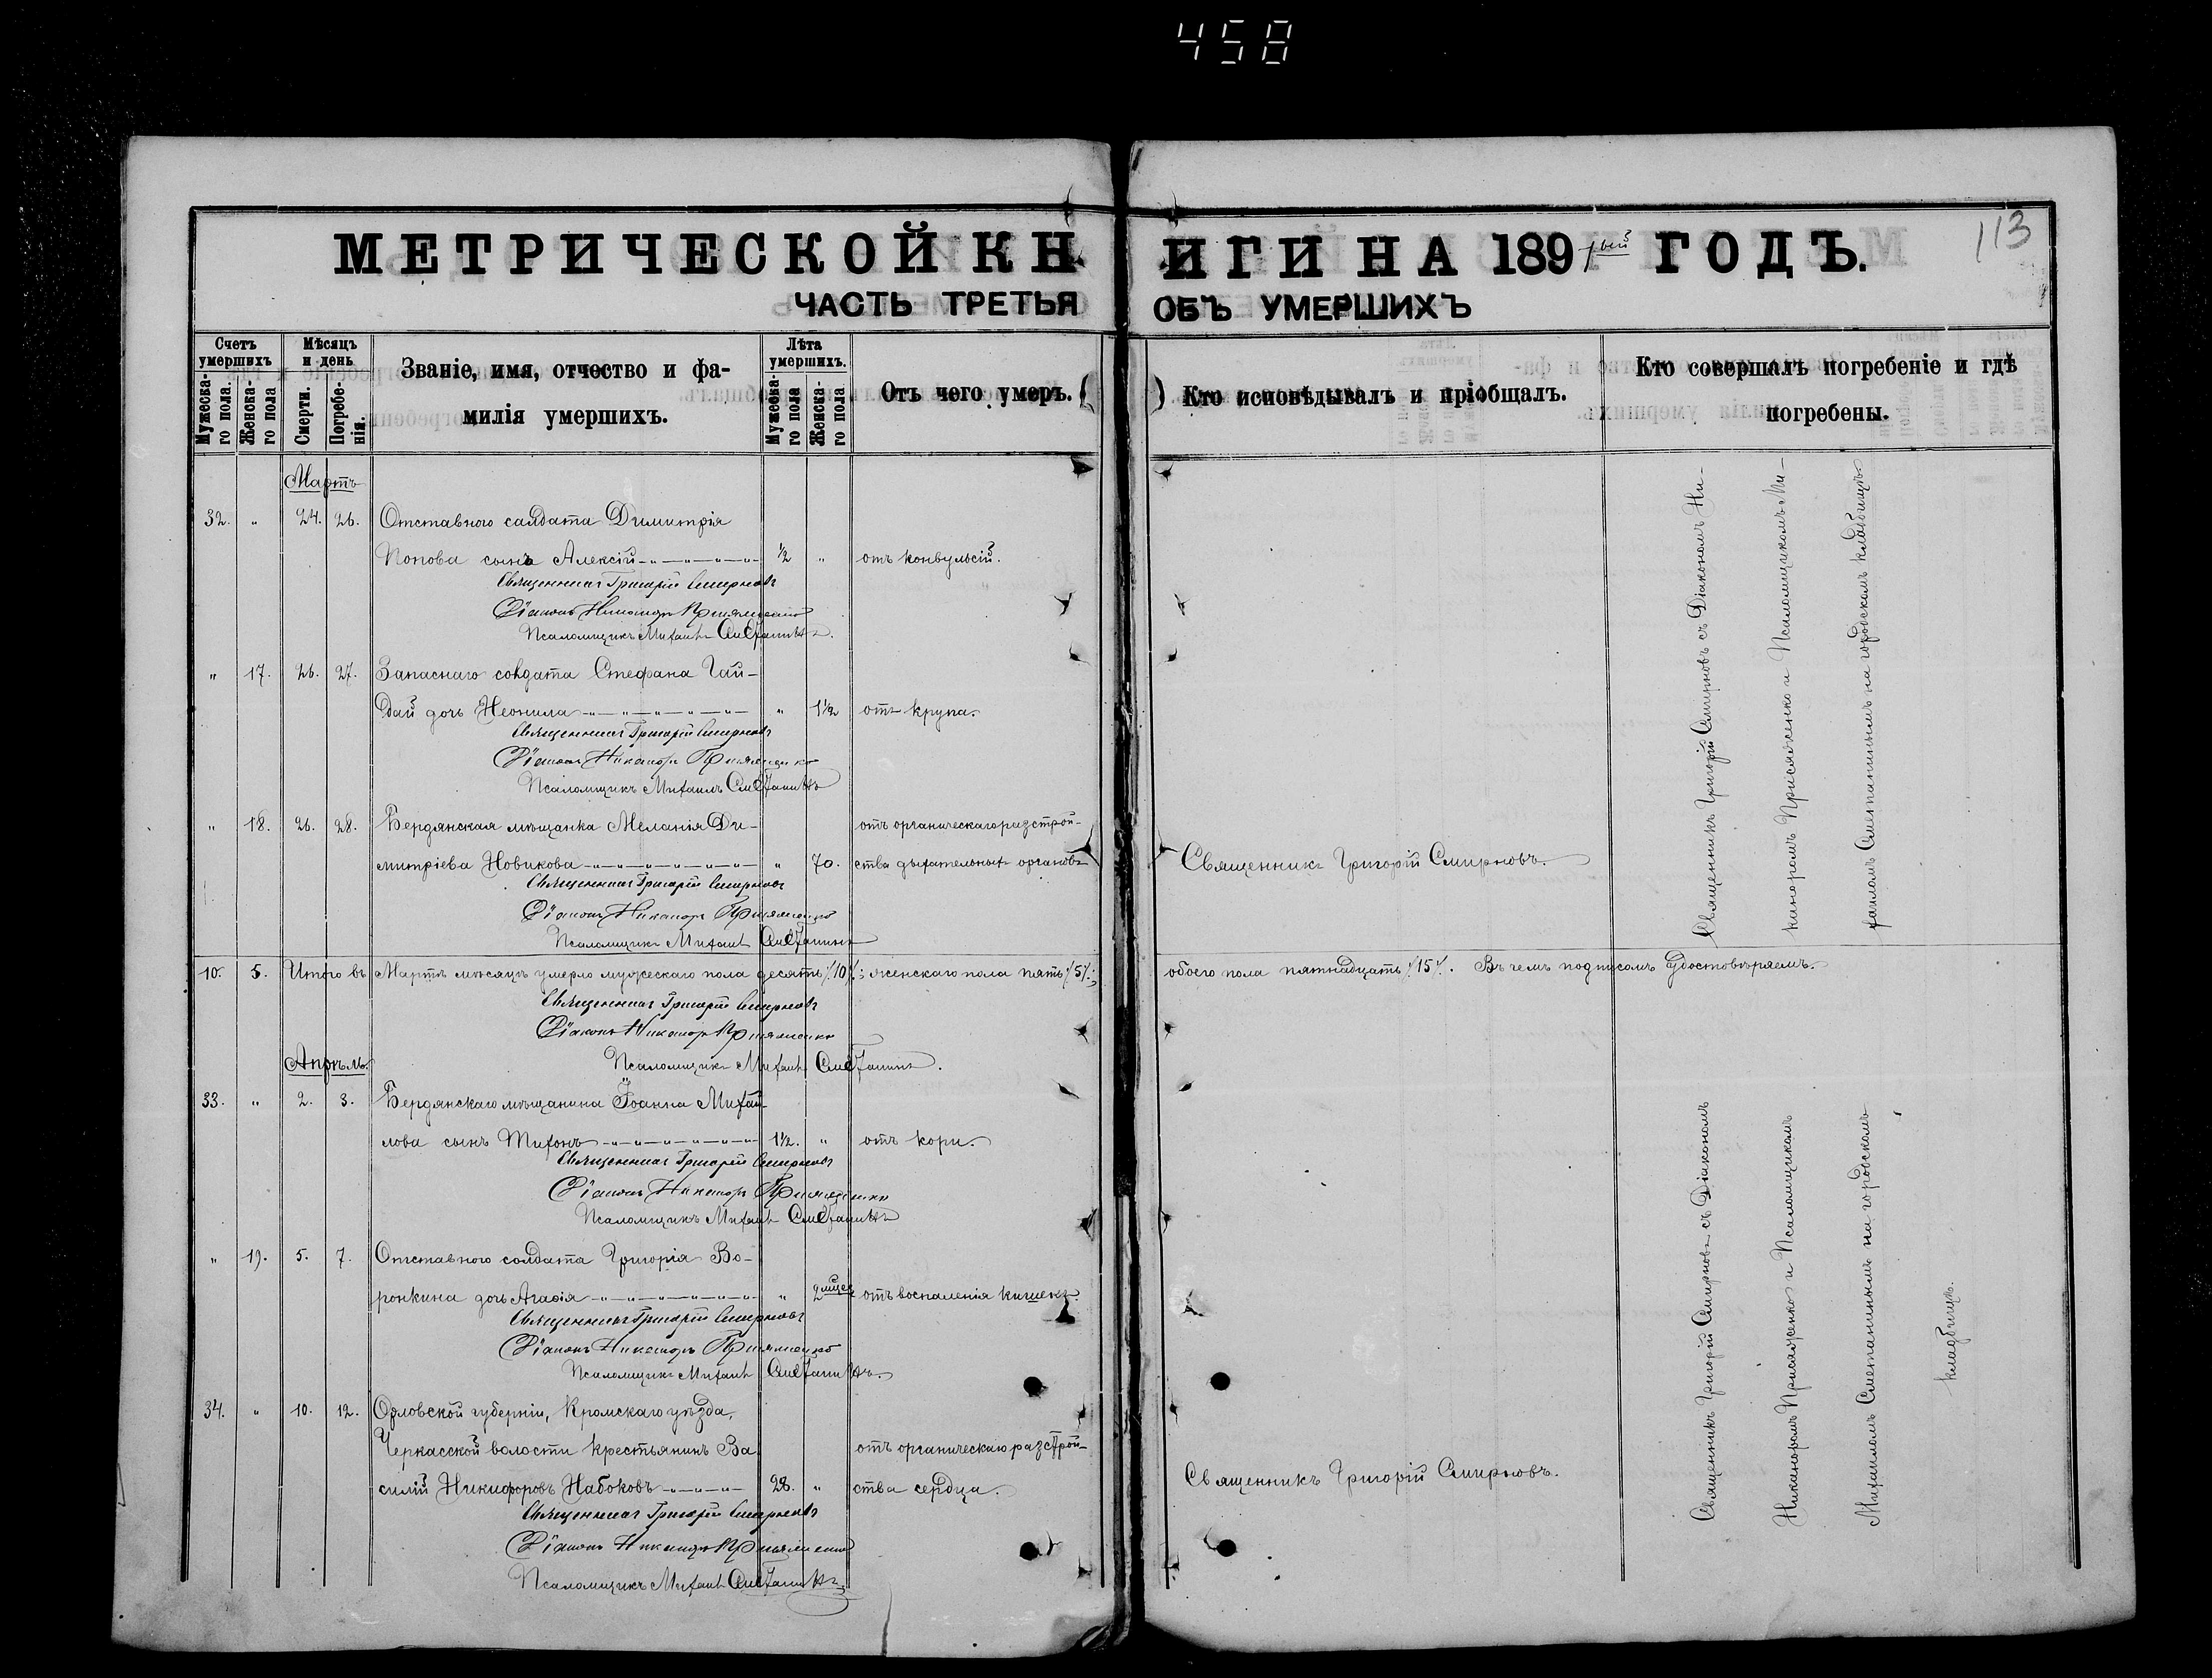 458
113
МЕТРИЧЕСКОЙ КНИГИ НА 1891ый ГОДЪ.
ЧАСТЬ ТРЕТЬЯ ОБЪ УМЕРШИХЪ
Счетъ умершихъ
Мужеска-го пола.
Женска-го пола
Мѣсяцъ и день
Смерти.
Погребе-нія.
Званіе, имя, отчество и фа-
милія умершихъ.
Лѣта умершихъ.
Мужеска-го пола
Женска-го пола.
Отъ чего умеръ.
Кто исповѣдывалъ и пріобщалъ.
Кто совершалъ погребеніе и гдѣ
погребены.
Мартъ
32. „ 24. 26. Отставного салдата Димитрія
Попова сынъ Алексій 1/2 „ отъ конвульсій.
Священникъ Григорій Смирновъ
Діаконъ Никаноръ Присяженко
Псаломщикъ Михаилъ Сметанинъ.
„ 17. 26. 27. Запаснаго солдата Стефана Гай-
дай дочь Неонила „ 1 1/2 отъ крупа.
Священникъ Григорій Смирновъ
Діаконъ Никаноръ Присяженко
Псаломщикъ Михаилъ Сметанинъ
„ 18. 26. 28. Бердянская мѣщанка Меланія Ди- отъ органическаго разстрой-
митріева Новикова „ 70. ства дыхательныхъ органовъ Священникъ Григорій Смирновъ.
Священникъ Григорій Смирновъ
Діаконъ Никаноръ Присяженко
Псаломщикъ Михаилъ Сметанинъ
Священникъ Григорій Смирновъ съ Діакономъ Ни-
каноромъ Присяженко и Псаломщикомъ Ми-
хаиломъ Сметанинымъ на городскомъ кладбищѣ.
10. 5. Итого въ Мартѣ мѣсяцѣ умерло мужескаго пола десять /10/; женскаго пола пять /5/; обоего пола пятнадцать /15/. Въ чемъ подписомъ удостовѣряемъ.
Священникъ Григорій Смирновъ
Діаконъ Никаноръ Присяженко
Псаломщикъ Михаилъ Сметанинъ.
Апрѣль.
33. „ 2. 3. Бердянскаго мѣщанина Іоанна Михай-
лова сынъ Тихонъ 1 1/2. „ отъ кори.
Священникъ Григорій Смирновъ
Діаконъ Никаноръ Присяженко
Псаломщикъ Михаилъ Сметанинъ
„ 19. 5. 7. Отставного солдата Григорія Во-
ронкина дочь Агафія „ 2 мѣсец. отъ воспаленія кишекъ.
Священникъ Григорій Смирновъ
Діаконъ Никаноръ Присяженко
Псаломщикъ Михаилъ Сметанинъ.
34. „ 10. 12. Орловской губерніи, Кромскаго уѣзда,
Черкасской волости крестьянинъ Ва- отъ органическаго разстрой-
силій Никифоровъ Набоковъ 28. „ ства сердца. Священникъ Григорій Смирновъ.
Священникъ Григорій Смирновъ
Діаконъ Никаноръ Присяженко
Псаломщикъ Михаилъ Сметанинъ
Священникъ Григорій Смирновъ съ Діакономъ
Никаноромъ Присяженко и Псаломщикомъ
Михаиломъ Сметанинымъ на городскомъ
кладбищѣ.